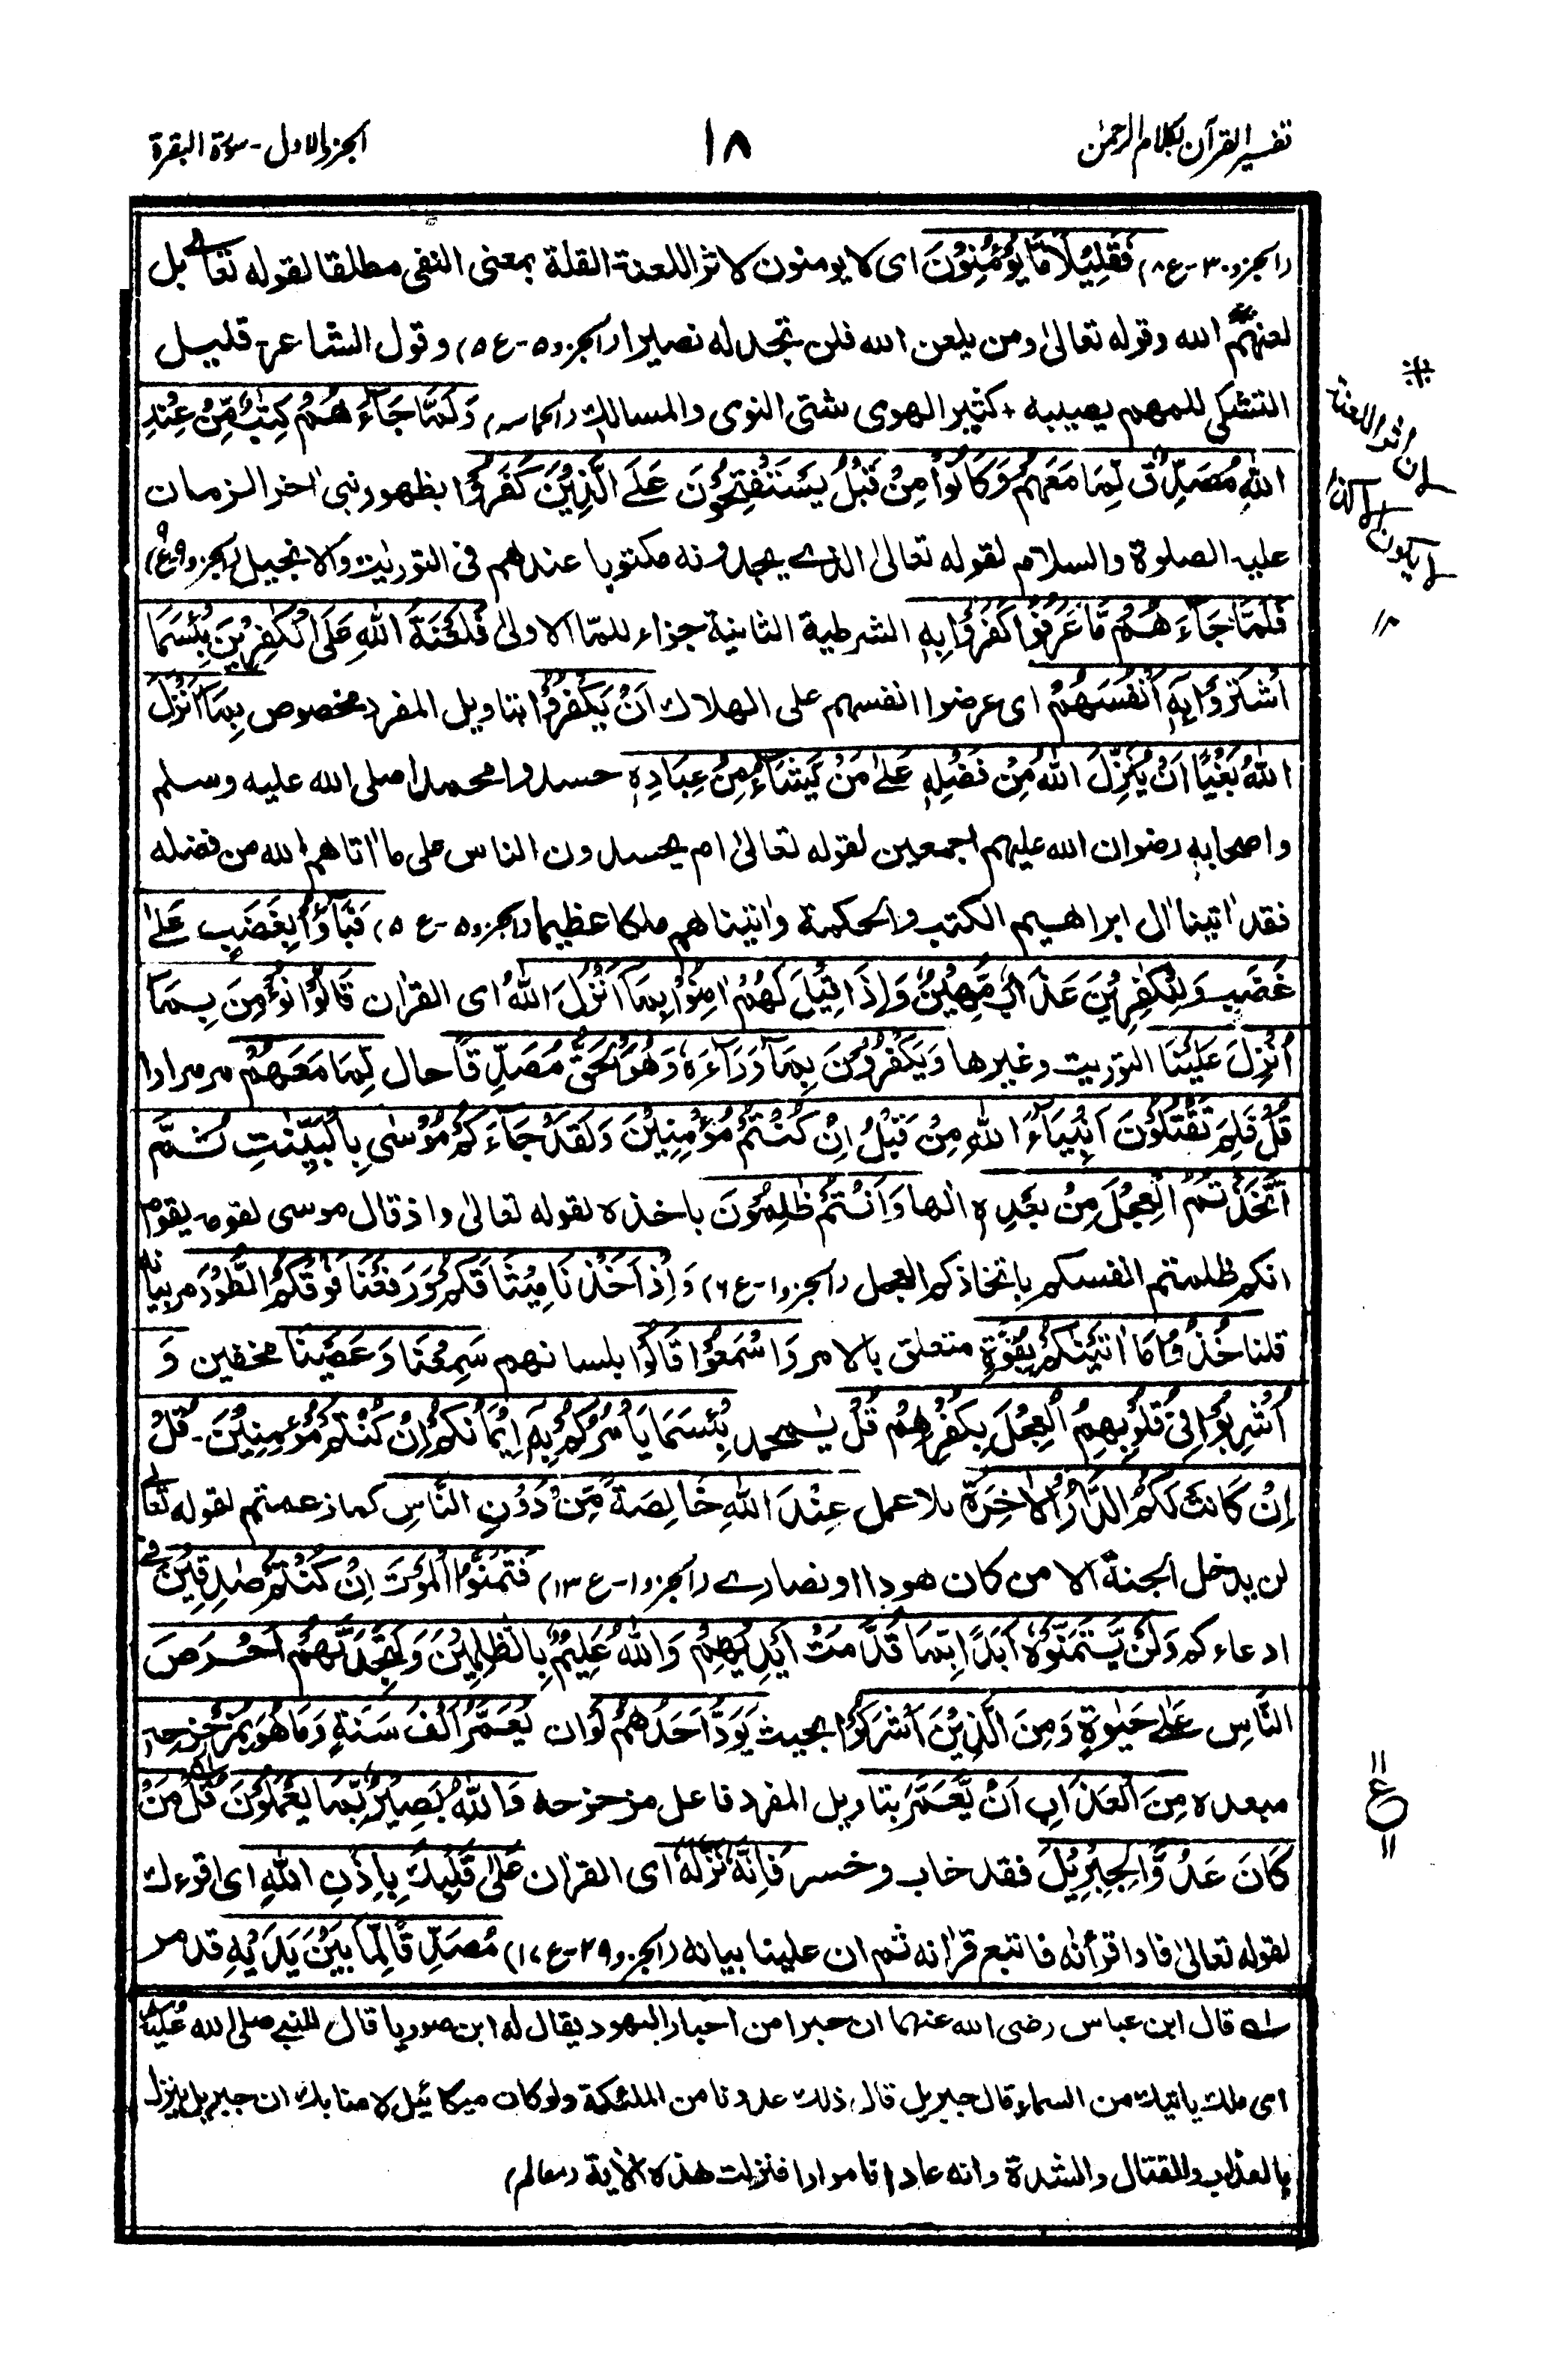 تفسير القرآن بكلام الرحمن
١٨
الجزء الاول - سورة البقرة
(الجزو ٣٠-ع ٨) فَقَلِيْلًا مَّا يُؤْمِنُوْنَ اى لا يومنون لاثر اللعنة القلة بمعنى النفى مطلقا لقوله تعالے بل
لعنهم الله وقوله تعالىٰ ومن يلعن الله فلن تجد له نصيرا (الجزو ٥-ع ٥) وقول الشاعر قليل
التشكى للمهم يصيبه + كثير الهوى شتى النوى والمسالك (الحماسه) وَلَمَّا جَآءَهُمْ كِتٰبٌ مِّنْ عِنْدِ
اللهِ مُصَدِّقٌ لِّمَا مَعَهُمْ وَكَانُوْا مِنْ قَبْلُ يَسْتَفْتِحُوْنَ عَلَے الَّذِيْنَ كَفَرُوْا بظهور نبى اٰخر الزمان
عليه الصلوة والسلام لقوله تعالىٰ الذے يجدونه مكتوبا عندهم فى التورٰىة والانجيل (الجزو ٩-ع ٩)
فَلَمَّا جَآءَهُمْ مَّا عَرَفُوْا كَفَرُوْا بِهٖ الشرطية الثانية جزاء للمّا الاولىٰ فَلَعْنَةُ اللهِ عَلَى الْكٰفِرِيْنَ بِئْسَمَا
اشْتَرَوْا بِهٖٓ اَنْفُسَهُمْ اى عرضوا انفسهم على الهلاك اَنْ يَّكْفُرُوْا بتاويل المفرد مخصوص بِمَآ اَنْزَلَ
اللهُ بَغْيًا اَنْ يُّنَزِّلَ اللهُ مِنْ فَضْلِهٖ عَلٰے مَنْ يَّشَآءُ مِنْ عِبَادِهٖ حسدوا محمدا صلى الله عليه وسلم
واصحابه رضوان الله عليهم اجمعين لقوله تعالىٰ ام يحسدون الناس على ما اٰتاهم الله من فضله
فقد اٰتينا اٰل ابراهيم الكتٰب والحكمة واٰتيناهم ملكا عظيما (الجزو ٥-ع ٥) فَبَآؤُا بِغَضَبٍ عَلٰے
غَضَبٍ وَلِلْكٰفِرِيْنَ عَذَابٌ مُّهِيْنٌ وَاِذَا قِيْلَ لَهُمْ اٰمِنُوْا بِمَآ اَنْزَلَ اللهُ اى القراٰن قَالُوْا نُؤْمِنُ بِمَآ
اُنْزِلَ عَلَيْنَا التوريت وغيرها وَيَكْفُرُوْنَ بِمَا وَرَآءَهٗ وَهُوَ الْحَقُّ مُصَدِّقًا حال لِّمَا مَعَهُمْ مر مرارا
قُلْ فَلِمَ تَقْتُلُوْنَ اَنْۢبِيَآءَ اللهِ مِنْ قَبْلُ اِنْ كُنْتُمْ مُّؤْمِنِيْنَ وَلَقَدْ جَآءَكُمْ مُّوْسٰى بِالْبَيِّنٰتِ ثُمَّ
اتَّخَذْتُمُ الْعِجْلَ مِنْۢ بَعْدِهٖ الٰها وَاَنْتُمْ ظٰلِمُوْنَ باخذه لقوله تعالىٰ واذ قال موسى لقومه يقوم
انكم ظلمتم انفسكم باتخاذكم العجل (الجزو ١-ع ٦) وَاِذْ اَخَذْنَا مِيْثَاقَكُمْ وَرَفَعْنَا فَوْقَكُمُ الطُّوْرَ مر بيانه
قلنا خُذُوْا مَآ اٰتَيْنٰكُمْ بِقُوَّةٍ متعلق بالامر وَاسْمَعُوْا قَالُوْا بلسانهم سَمِعْنَا وَعَصَيْنَا مخفين وَ
اُشْرِبُوْا فِىْ قُلُوْبِهِمُ الْعِجْلَ بِكُفْرِهِمْ قُلْ يٰمحمد بِئْسَمَا يَأْمُرُكُمْ بِهٖٓ اِيْمَانُكُمْ اِنْ كُنْتُمْ مُّؤْمِنِيْنَ - قُلْ
اِنْ كَانَتْ لَكُمُ الدَّارُ الْاٰخِرَةُ بلا عمل عِنْدَ اللهِ خَالِصَةً مِّنْ دُوْنِ النَّاسِ كما زعمتم لقوله تعالے
لن يدخل الجنة الا من كان هودا او نصارے (الجزو ١-ع ١٣) فَتَمَنَّوُا الْمَوْتَ اِنْ كُنْتُمْ صٰدِقِيْنَ فے
ادعاءكم وَلَنْ يَّتَمَنَّوْهُ اَبَدًۢا بِمَا قَدَّمَتْ اَيْدِيْهِمْ وَاللهُ عَلِيْمٌۢ بِالظّٰلِمِيْنَ وَلَتَجِدَنَّهُمْ اَحْرَصَ
النَّاسِ عَلٰے حَيٰوةٍ وَمِنَ الَّذِيْنَ اَشْرَكُوْا بحيث يَوَدُّ اَحَدُهُمْ لَوْ ان يُعَمَّرُ اَلْفَ سَنَةٍ وَمَا هُوَ بِمُزَحْزِحِهٖ
مبعده مِنَ الْعَذَابِ اَنْ يُّعَمَّرَ بتاويل المفرد فاعل مزحزحه وَاللهُ بَصِيْرٌۢ بِمَا يَعْمَلُوْنَ قُلْ مَنْ
كَانَ عَدُوًّا لِّجِبْرِيْلَ فقد خاب وخسر فَاِنَّهٗ نَزَّلَهٗ اى القراٰن عَلٰى قَلْبِكَ بِاِذْنِ اللهِ اى اقرءك
لقوله تعالىٰ فاذا قرأنٰه فاتبع قراٰنه ثم ان علينا بيانه (الجزو ٢٩-ع ١٧) مُصَدِّقًا لِّمَا بَيْنَ يَدَيْهِ قد مر
لہ قال ابن عباس رضى الله عنهما ان حبرا من احبار اليهود يقال له ابن صوريا قال للنبے صلى الله عليه
اى ملك ياتيك من السماء قال جبريل قال ذلك عدونا من الملئكة ولو كان ميكائيل لاٰمنا بك ان جبريل ينزل
بالعذاب والقتال والشدة وانه عادانا مرارا فنزلت هذه الاٰية (معالم)
※
اثر اللعنة
ان
يكون
١٢
ع